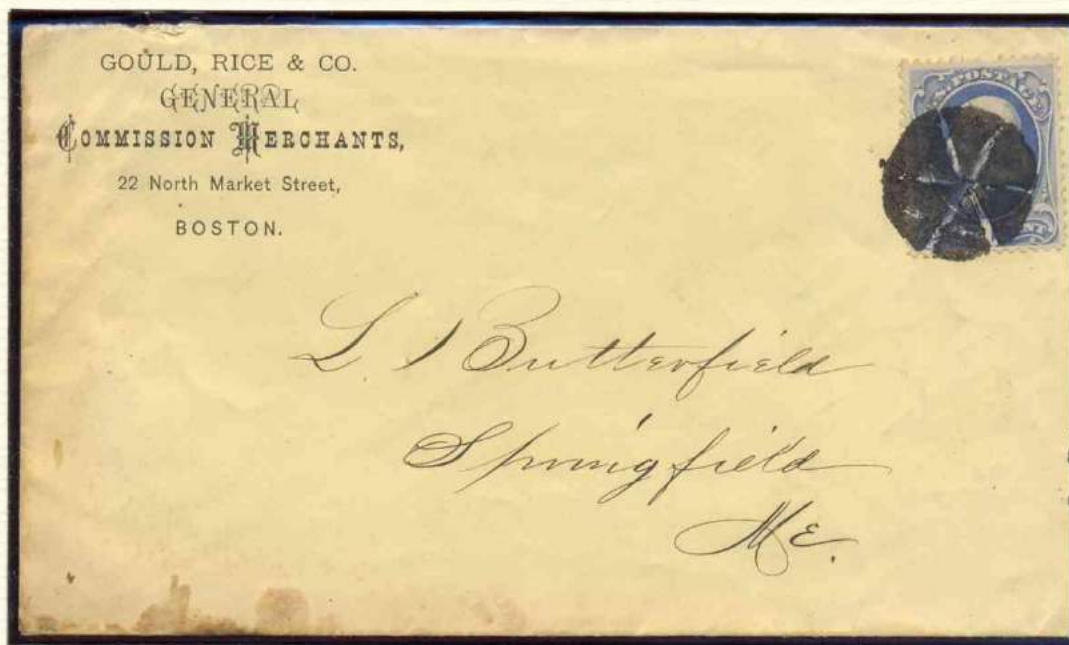 GOULD, RICE & CO.
GENERAL
COMMISSION MERCHANTS,
22 North Market Street,
BOSTON.
U.S. POSTAGE
L. Butterfield
Springfield
Me.